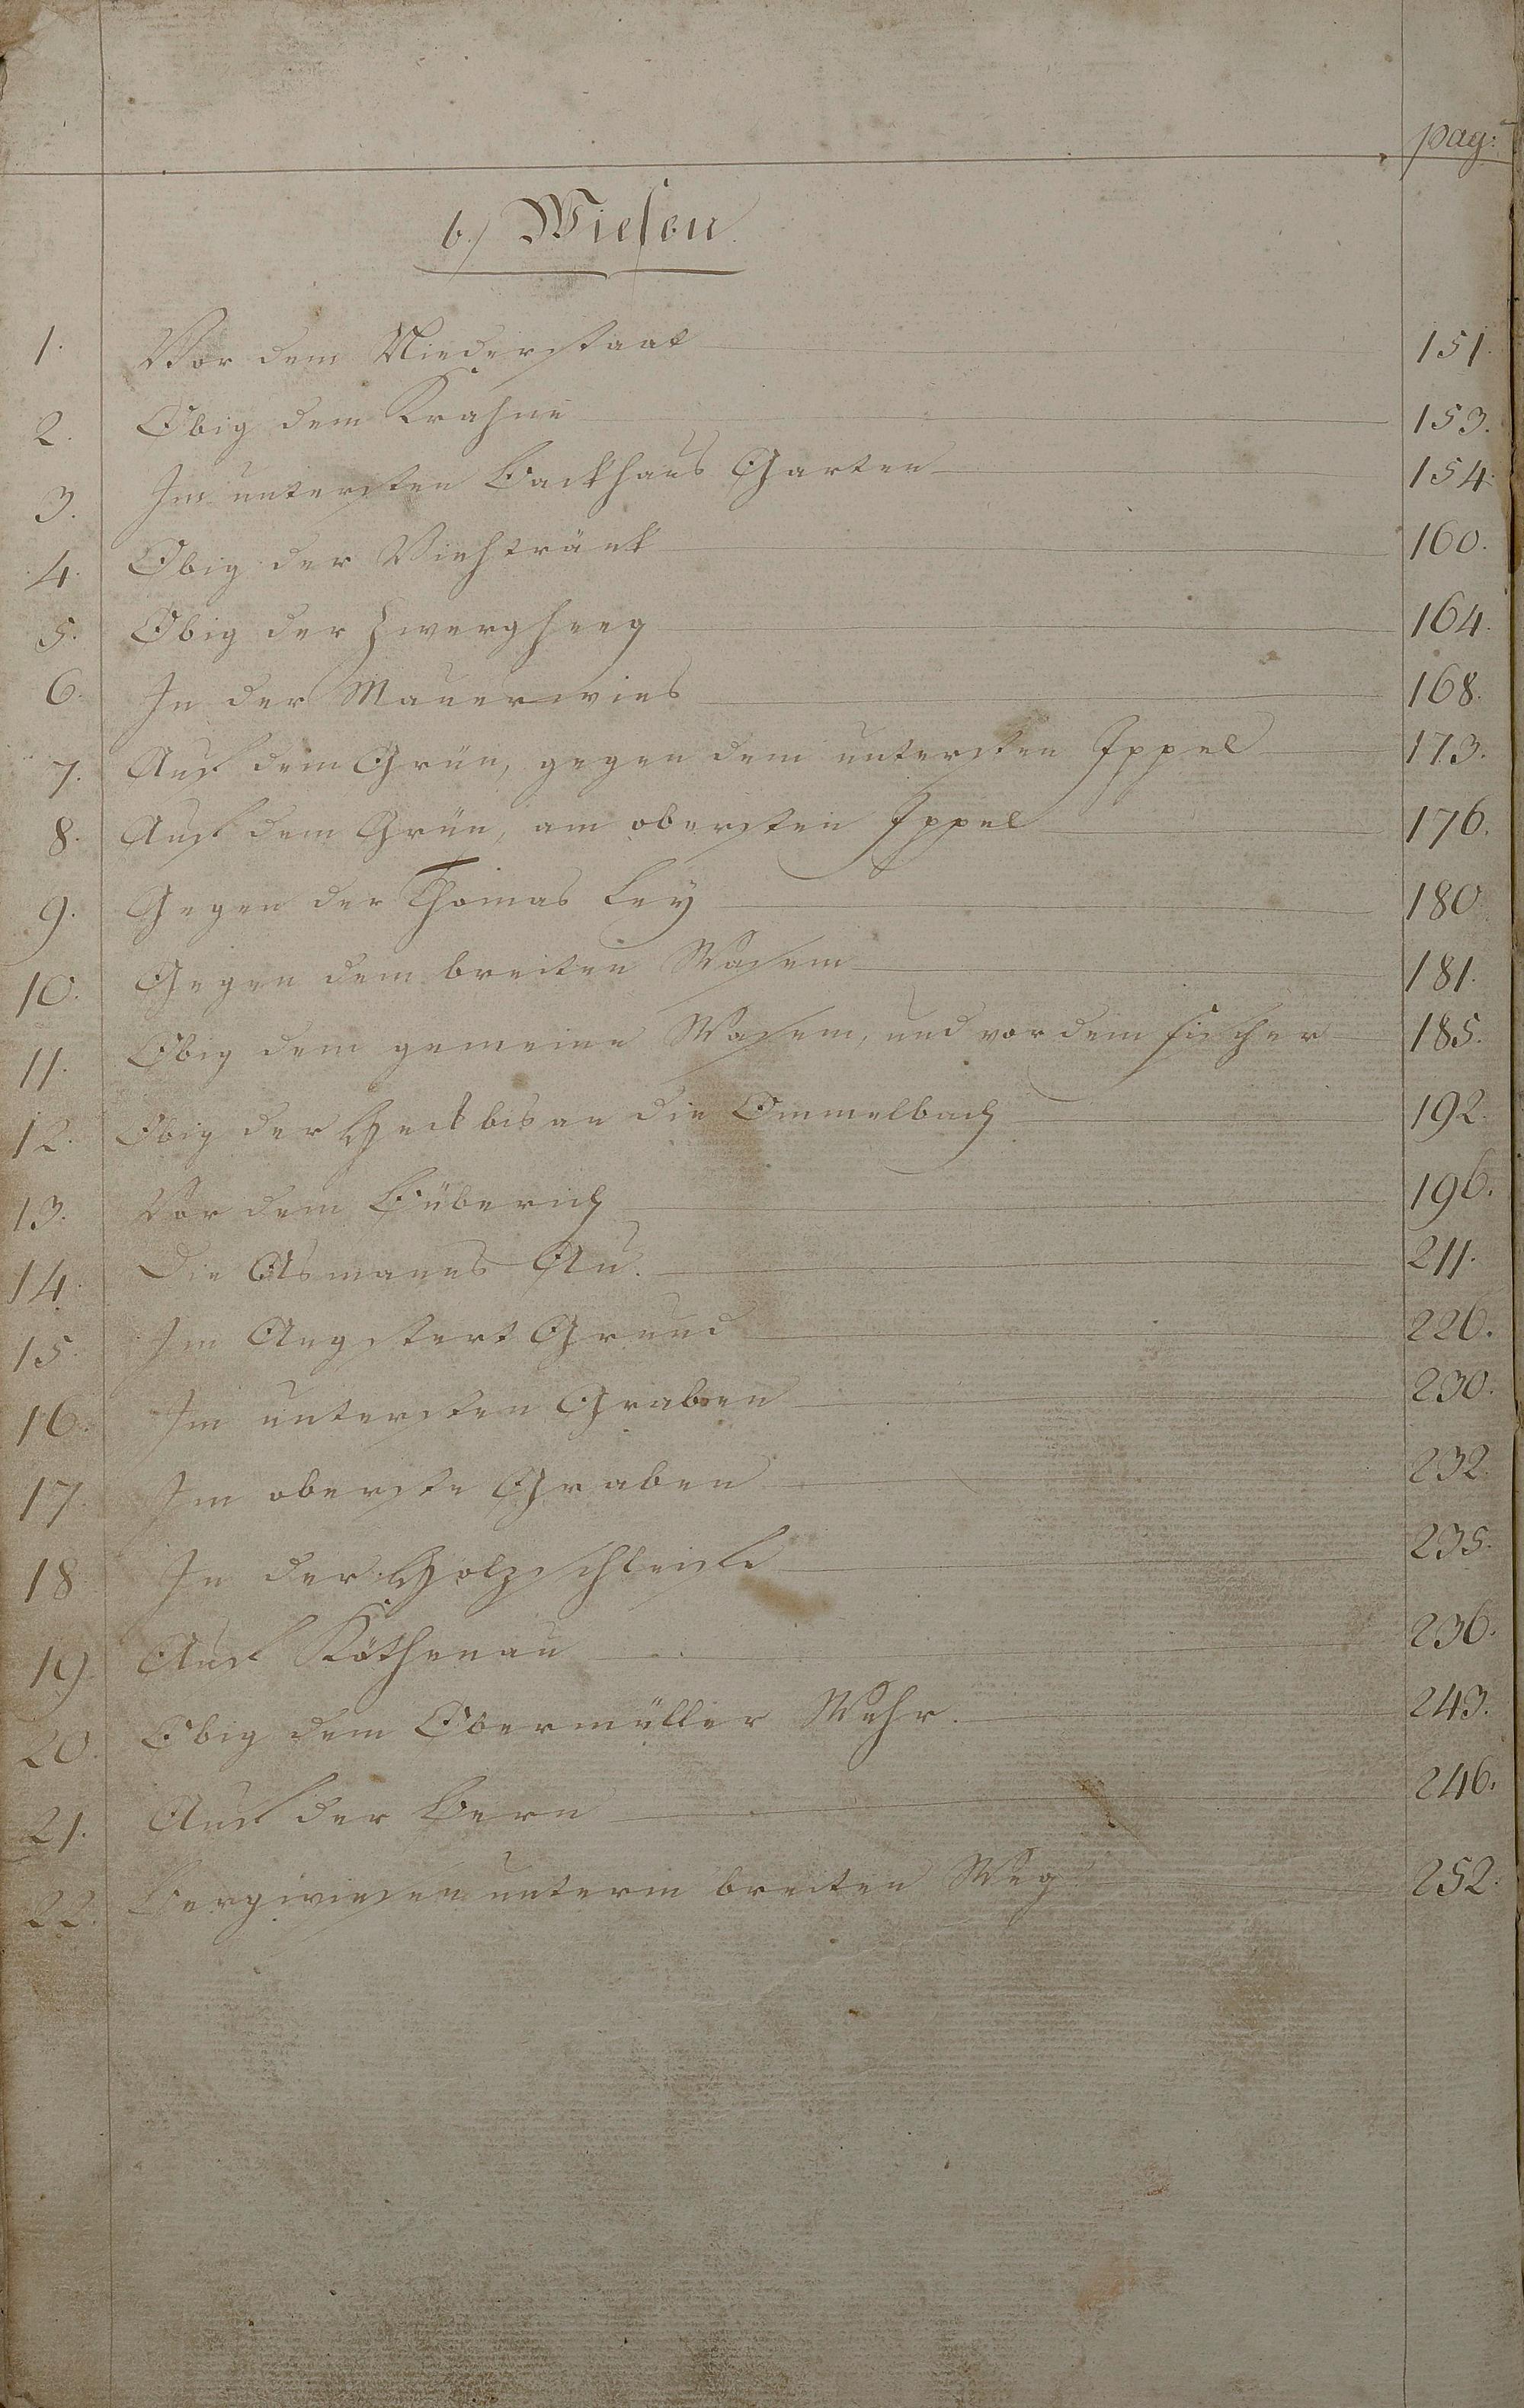 pag:
b.) Wiesen.
1. Vor dem Niederstaal 151.
2. Obig dem Krahne 153.
3. Im untersten Backhaus Garten 154.
4. Obig der Viehtränk 160.
5. Obig der Zwergheeg 164.
6. In der Mauerwies 168.
7. Auf dem Grün, gegen dem untersten Ippel 173.
8. Auf dem Grün, am obersten Ippel 176.
9. Gegen der Thomas Ley 180
10. Gegen dem breiten Wasem 181.
11. Obig dem gemeine Wasem, und vor dem 185.
12. Obig der Heck bis an die Ommelbach 192.
13. Vor dem 196.
14. Die Asmanns Au. 211.
15. Im Angstert Grund 226.
16. Im untersten Graben 230.
17. Im oberste Graben 232.
18. In der Holzschleife 235.
19. Auf Köthenau 236.
20. Obig dem Obermüller Wehr. 243.
21. Auf der Bern 246.
22. Bergwiesen unterm breiten Weg 252.